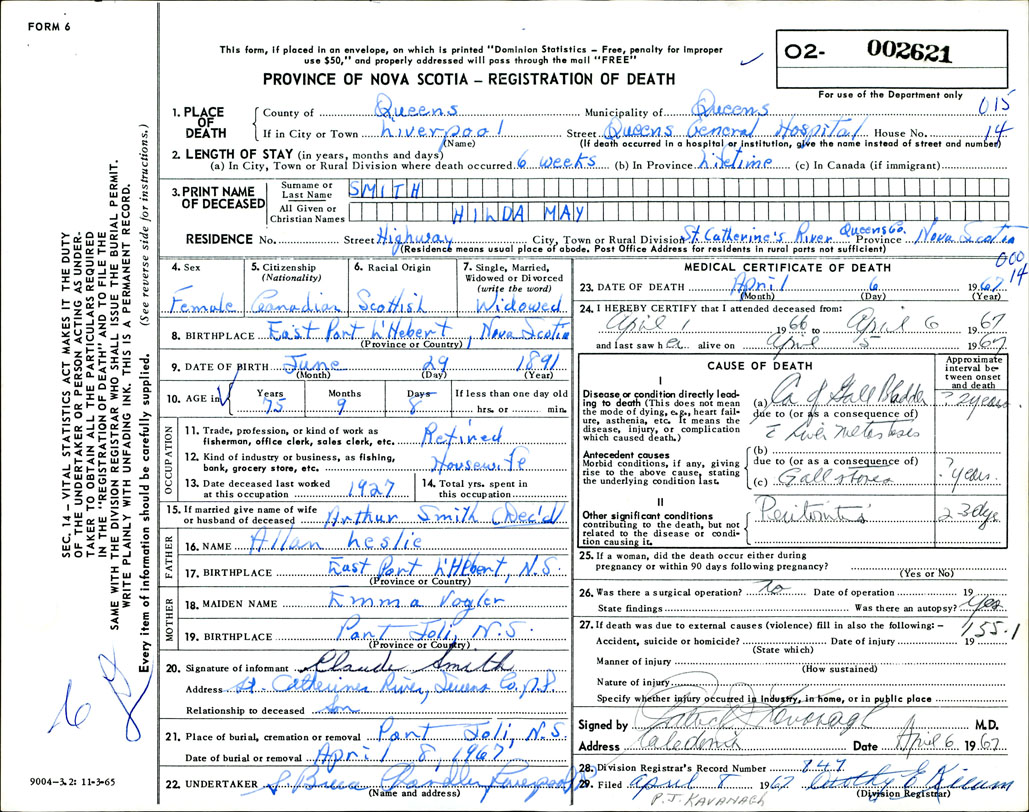 FORM 6
This form, if placed in an envelope, on which is printed "Dominion Statistics – Free, penalty for improper
use $50," and properly addressed will pass through the mail "FREE"
PROVINCE OF NOVA SCOTIA – REGISTRATION OF DEATH
O2- 002621
For use of the Department only
015
14
1. PLACE OF DEATH
County of Queens Municipality of Queens
If in City or Town Liverpool Street Queens General Hospital House No.
(Name) (If death occurred in a hospital or institution, give the name instead of street and number)
2. LENGTH OF STAY (in years, months and days)
(a) In City, Town or Rural Division where death occurred 6 weeks (b) In Province Lifetime (c) In Canada (if immigrant)
3. PRINT NAME OF DECEASED
Surname or Last Name SMITH
All Given or Christian Names HILDA MAY
RESIDENCE No. Street Highway City, Town or Rural Division St. Catherine's River Queens Co. Province Nova Scotia
(Residence means usual place of abode. Post Office Address for residents in rural parts not sufficient)
000
14
4. Sex Female
5. Citizenship (Nationality) Canadian
6. Racial Origin Scottish
7. Single, Married, Widowed or Divorced (write the word) Widowed
8. BIRTHPLACE East Port L'Hebert, Nova Scotia
(Province or Country)
9. DATE OF BIRTH June 29 1891
(Month) (Day) (Year)
10. AGE in Years 75 Months 9 Days 8 If less than one day old hrs. or min.
OCCUPATION
11. Trade, profession, or kind of work as fisherman, office clerk, sales clerk, etc. Retired
12. Kind of industry or business, as fishing, bank, grocery store, etc. Housewife
13. Date deceased last worked at this occupation 1927
14. Total yrs. spent in this occupation
15. If married give name of wife or husband of deceased Arthur Smith (Dec'd)
FATHER
16. NAME Allan Leslie
17. BIRTHPLACE East Port L'Hebert, N.S.
(Province or Country)
MOTHER
18. MAIDEN NAME Emma Vogler
19. BIRTHPLACE Port Joli, N.S.
(Province or Country)
20. Signature of informant Claude Smith
Address St. Catherines River, Queens Co. N.S.
Relationship to deceased Son
21. Place of burial, cremation or removal Port Joli, N.S.
Date of burial or removal April 8, 1967
22. UNDERTAKER Chandler Liverpool
(Name and address)
MEDICAL CERTIFICATE OF DEATH
23. DATE OF DEATH April 6 1967
(Month) (Day) (Year)
24. I HEREBY CERTIFY that I attended deceased from:
April 1 1966 to April 6 1967
and last saw her alive on April 5 1967
CAUSE OF DEATH
Approximate interval between onset and death
I
Disease or condition directly leading to death (This does not mean the mode of dying, e.g., heart failure, asthenia, etc. It means the disease, injury, or complication which caused death.)
(a) Ca of Gall Bladder ? 2 years
due to (or as a consequence of)
c Liver Metastases
Antecedent causes
Morbid conditions, if any, giving rise to the above cause, stating the underlying condition last.
(b)
due to (or as a consequence of)
(c) Gallstones ? years.
II
Other significant conditions contributing to the death, but not related to the disease or condition causing it.
Peritonitis 2-3 days
25. If a woman, did the death occur either during pregnancy or within 90 days following pregnancy?
(Yes or No)
26. Was there a surgical operation? No Date of operation 19
State findings Was there an autopsy? Yes
27. If death was due to external causes (violence) fill in also the following: – 155.1
Accident, suicide or homicide? Date of injury 19
(State which)
Manner of injury
(How sustained)
Nature of injury
Specify whether injury occurred in industry, in home, or in public place
Signed by Patrick J Kavanagh M.D.
Address Caledonia Date April 6 1967
28. Division Registrar's Record Number 747
29. Filed April 8 1967
(Division Registrar)
P. J. KAVANAGH
SEC. 14 – VITAL STATISTICS ACT MAKES IT THE DUTY
OF THE UNDERTAKER OR PERSON ACTING AS UNDER-
TAKER TO OBTAIN ALL THE PARTICULARS REQUIRED
IN THE "REGISTRATION OF DEATH" AND TO FILE THE
SAME WITH THE DIVISION REGISTRAR WHO SHALL ISSUE THE BURIAL PERMIT.
WRITE PLAINLY WITH UNFADING INK. THIS IS A PERMANENT RECORD.
Every item of information should be carefully supplied. (See reverse side for instructions.)
9004-3.2: 11-3-65